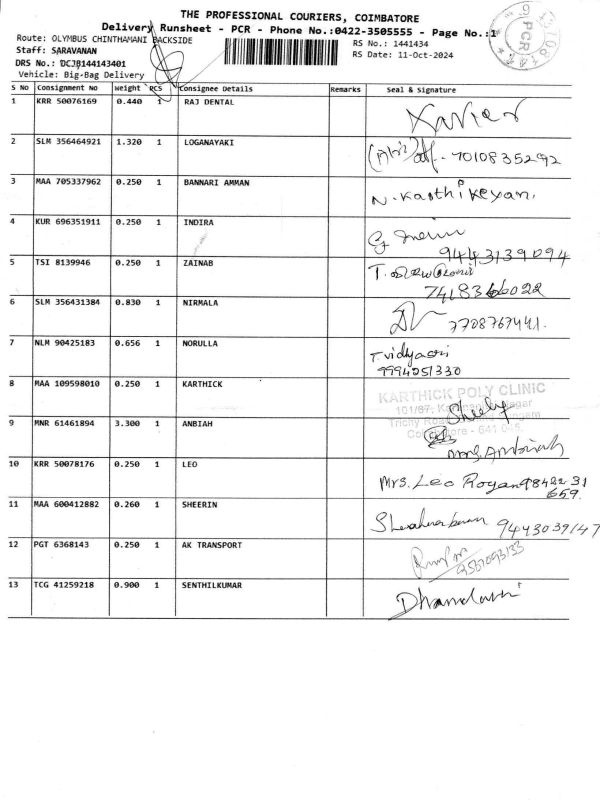 THE PROFESSIONAL COURIERS, COIMBATORE
Delivery Runsheet - PCR - Phone No.:0422-3505555 - Page No.:1
Route: OLYMBUS CHINTHAMANI BACKSIDE
RS No.: 1441434
Staff: SARAVANAN
RS Date: 11-Oct-2024
DRS No.: DCJB144143401
Vehicle: Big-Bag Delivery
PCR
S No Consignment No Weight PCS Consignee Details Remarks Seal & Signature
1 KRR 50076169 0.440 1 RAJ DENTAL Xavier
2 SLM 356464921 1.320 1 LOGANAYAKI 7010835292
3 MAA 705337962 0.250 1 BANNARI AMMAN N. Karthikeyan.
4 KUR 696351911 0.250 1 INDIRA 9443139094
5 TSI 8139946 0.250 1 ZAINAB T.
6 SLM 356431384 0.830 1 NIRMALA 7708767441.
7 NLM 90425183 0.656 1 NORULLA T vidhyasri
9994051330
8 MAA 109598010 0.250 1 KARTHICK KARTHICK POLY CLINIC
101/87,
Tricity Road
Coimbatore - 641 045.
9 MNR 61461894 3.300 1 ANBIAH Mrs. Ambiah
10 KRR 50078176 0.250 1 LEO Mrs. Leo Royan 98422 31
659.
11 MAA 600412882 0.260 1 SHEERIN 9443039147
12 PGT 6368143 0.250 1 AK TRANSPORT
13 TCG 41259218 0.900 1 SENTHILKUMAR